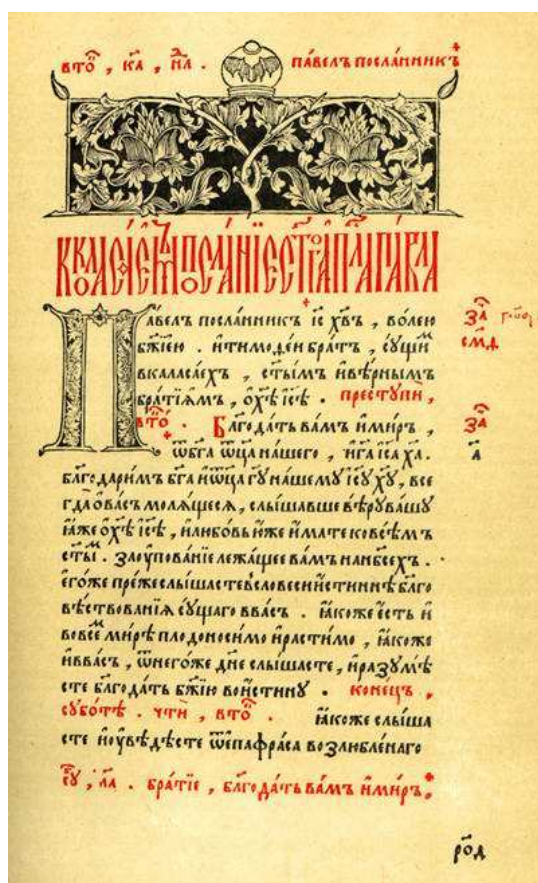 вто҇ , ка҃ , нл҃ . па́велъ посла́нникъ
К КОЛАСАЄѠМЪ ПОСЛАНІЕ СТ҃АГѠ АПⷭ҇ЛА ПАВЛА
Па́велъ посла́нникъ і҆с хв҃ъ , во́лею
бж҃їею . и҆ тимоѳеи бра́тъ , су́щиⷨ
в каласа́ехъ , ст҃ы́мъ и҆ вѣ́рнымъ
бра́тїѧмъ , ѡ҆ хѣ҃ і҆сѣ . преступи̑ ,
вто҇ . Бл҃года́ть ва́мъ и҆ ми́ръ ,
ѿ бг҃а ѿц҃а на́шего , и҆ гд҃а і҆са ха҃ .
бл҃годари́мъ бг҃а и҆ ѿц҃а гд҃у на́шему і҆су ху҃ , все
гда̀ ѡ҆ ва́съ молѧ́щесѧ , слы́шавше вѣ́ру ва́шу
ꙗ҆́же ѡ҆ хѣ҃ і҆сѣ , и҆ любо́вь ю҆́же и҆́мате ко всѣ́мъ
ст҃ы́ⷨ . за ᲂу҆пова́нїе лежа́щее ва́мъ на нб҃сехъ .
є҆го́же пре́же слы́шасте в словеси̑ и҆́стиннѣ бл҃го
вѣ́ствованїѧ су́щаго в ва́съ . ꙗ҆́коже є҆́сть и҆
во все́ⷨ ми́рѣ плодоноси́мо и҆ расти́мо , ꙗ҆́коже
и҆ в ва́съ , ѿ него́же дн҃е слы́шасте , и҆ разумѣ́
сте бл҃года́ть бж҃їю вои́стину . коне́цъ ,
субо́тѣ . чти̑ , вто҇ . ꙗ҆́коже слы́ша
сте и҆ ᲂу҆вѣ́дѣсте ѿ є҆пафра́са возлю́бленаго
су҇ , ла҃ . бра́тїе , бл҃года́ть ва́мъ и҆ ми́ръ .
за҇
смд҃
за҇
а҃
ро҃д